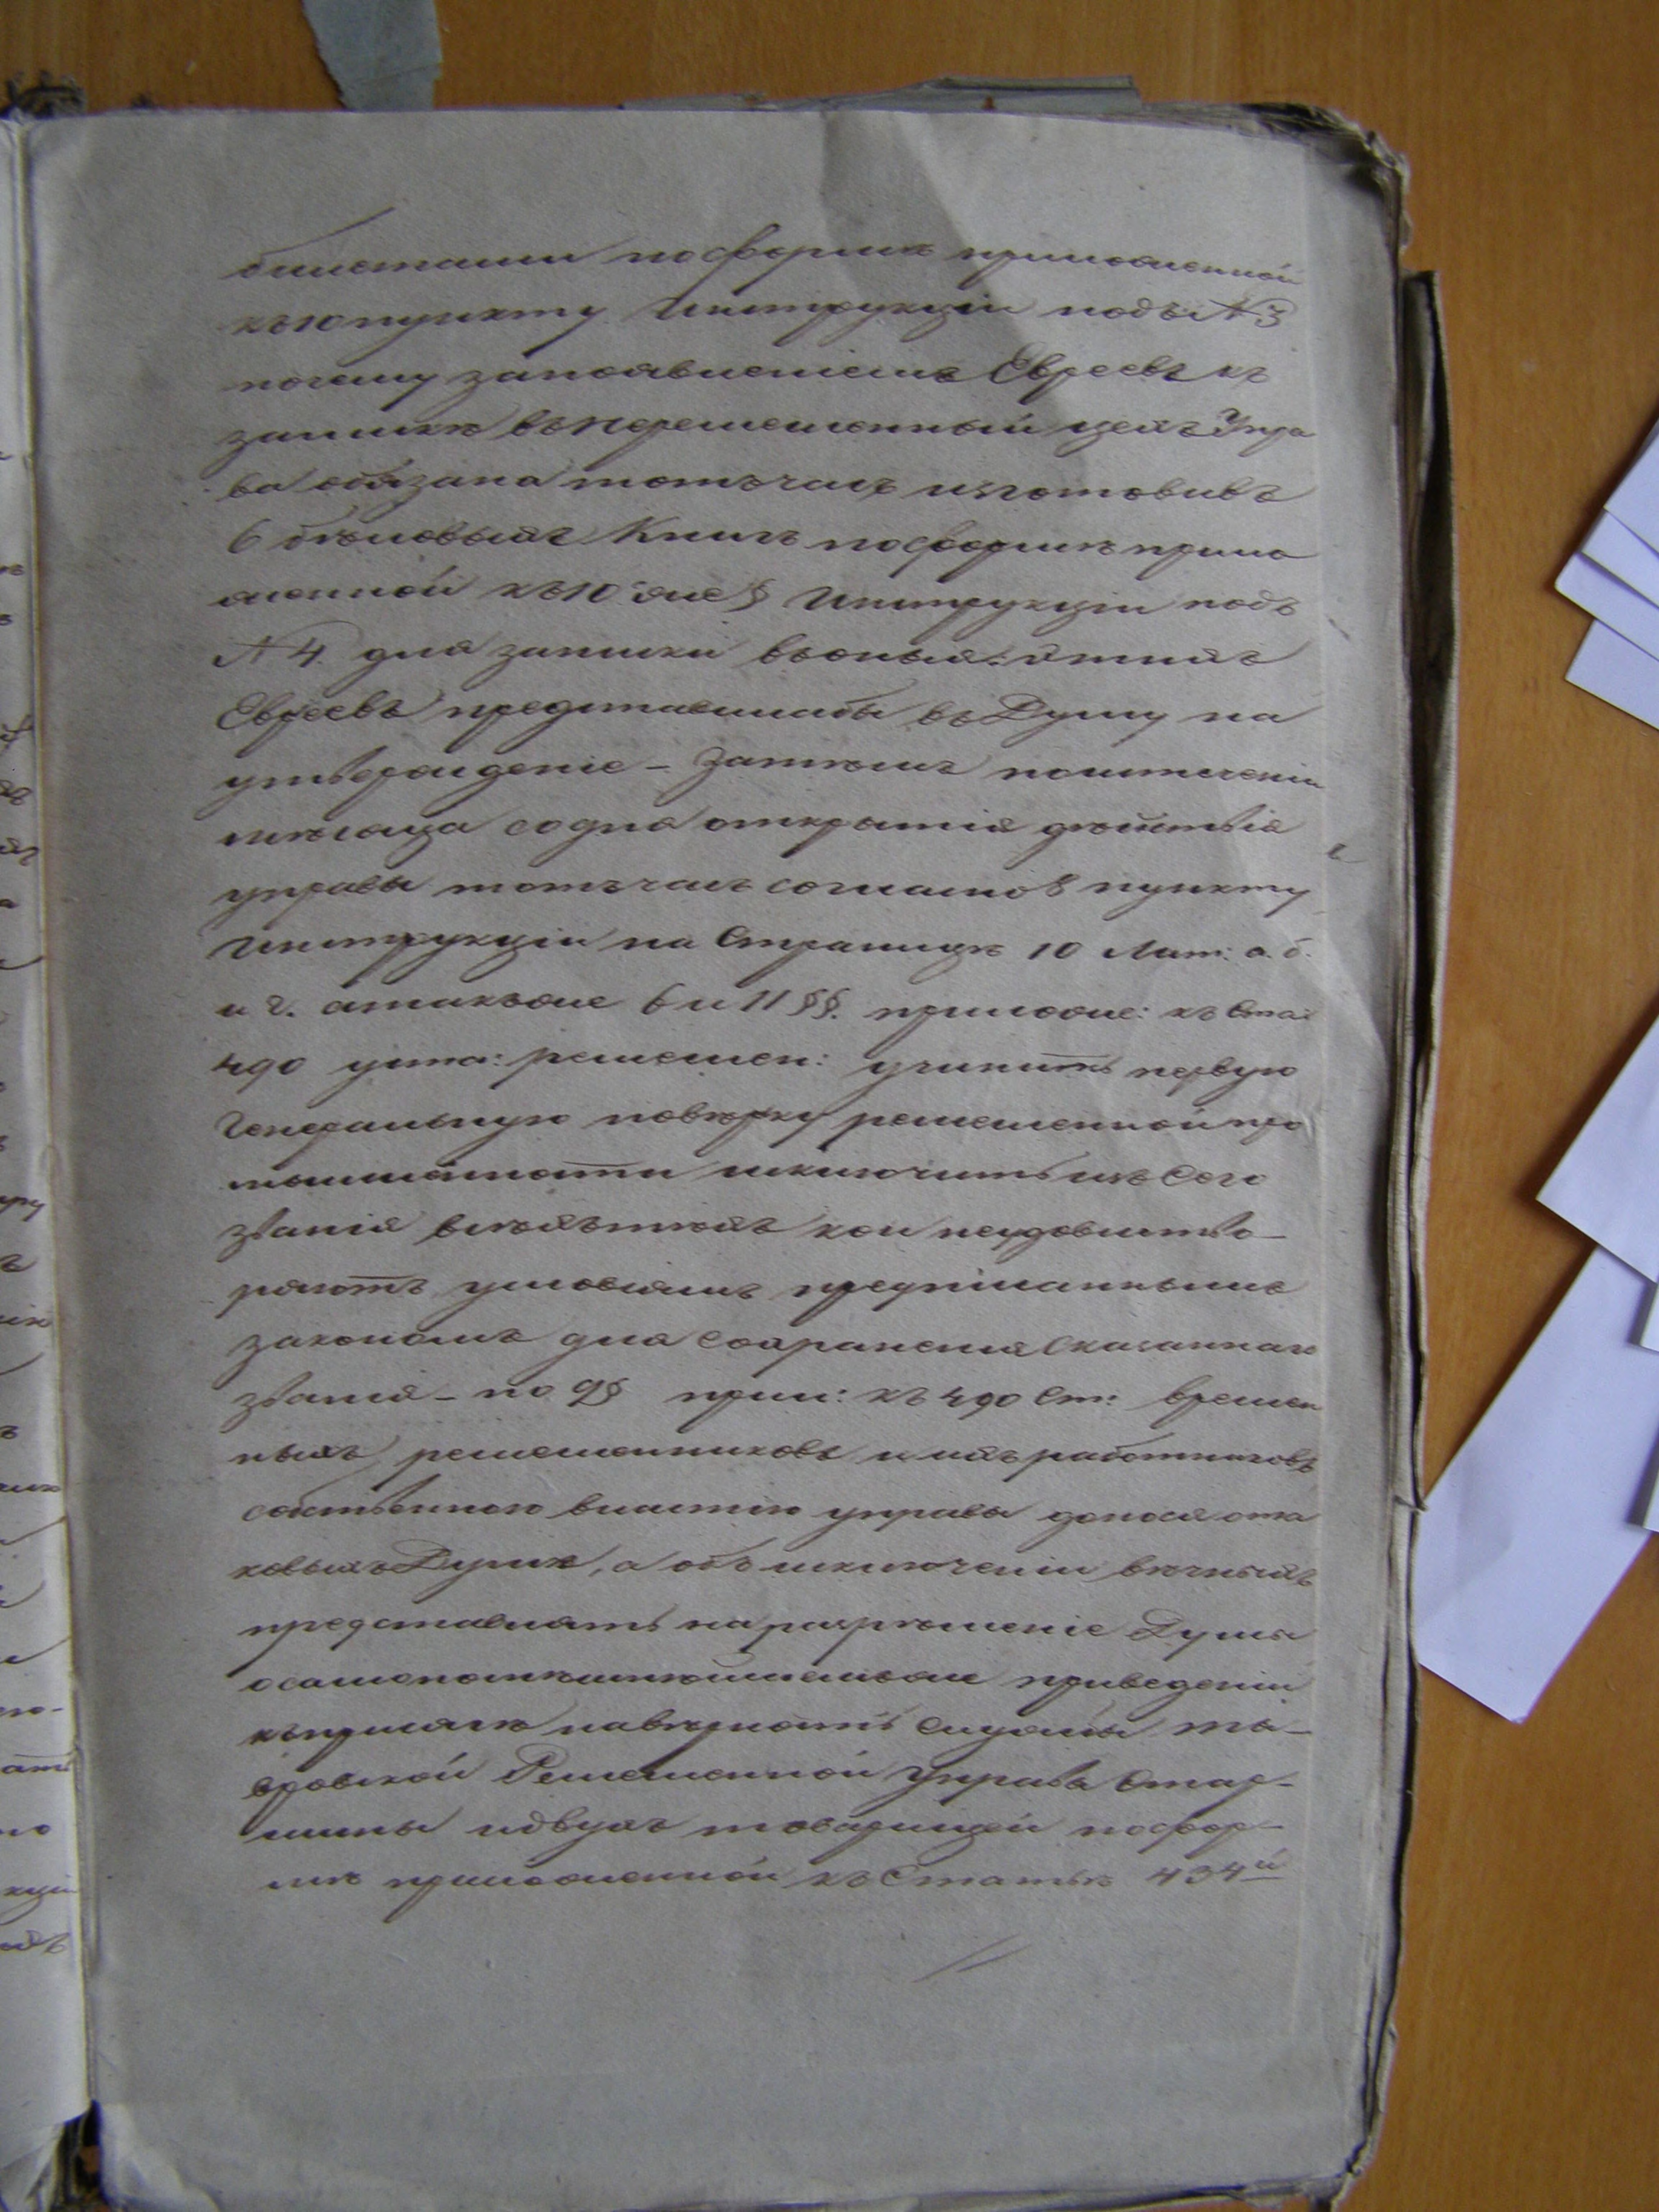 билетами по формѣ приложенной
къ 10 пункту Инструкціи подъ № 3
почему за появленіемъ Евреевъ къ
запискѣ въ неремесленный цехъ Упра
ва обязана тотъ часъ изготовивъ
6 бѣловыхъ Книгъ по формѣ прило
женной къ 10 же § Инструкціи подъ
№ 4. для записки въ оныя
Евреевъ представила бы въ Думу на
утвержденіе – Затѣмъ по истеченіи
мѣсяца со дня открытія дѣйствія
управы тотъ часъ согласно 8 пункту
Инструкціи на Страницѣ 10 Лит: а. б.
и г. а также 6 и 11 §§. прилож: къ Стат
490 уста: ремеслен: учинить первую
Генеральную повѣрку ремесленной про
мышленности исключить изъ Сего
званія всѣхъ тѣхъ кои неудовлетво–
ряютъ условіямъ предписаннымъ
закономъ для Сохраненія Сказаннаго
званія – по 9 § прил: къ 490 Ст: времен
ныхъ ремесленниковъ и ихъ работниковъ
собственною властію управы донося о та
ковыхъ Думѣ, а объ исключеніи вѣчныхъ
представлять на разрѣшеніе Думы
о самопоспѣшнѣйшемъ же приведеніи
къ присягѣ на вѣрность Службы
Ремесленной Управы Стар–
шины и двухъ товарищей по фор–
мѣ приложенной къ Статьѣ 434й